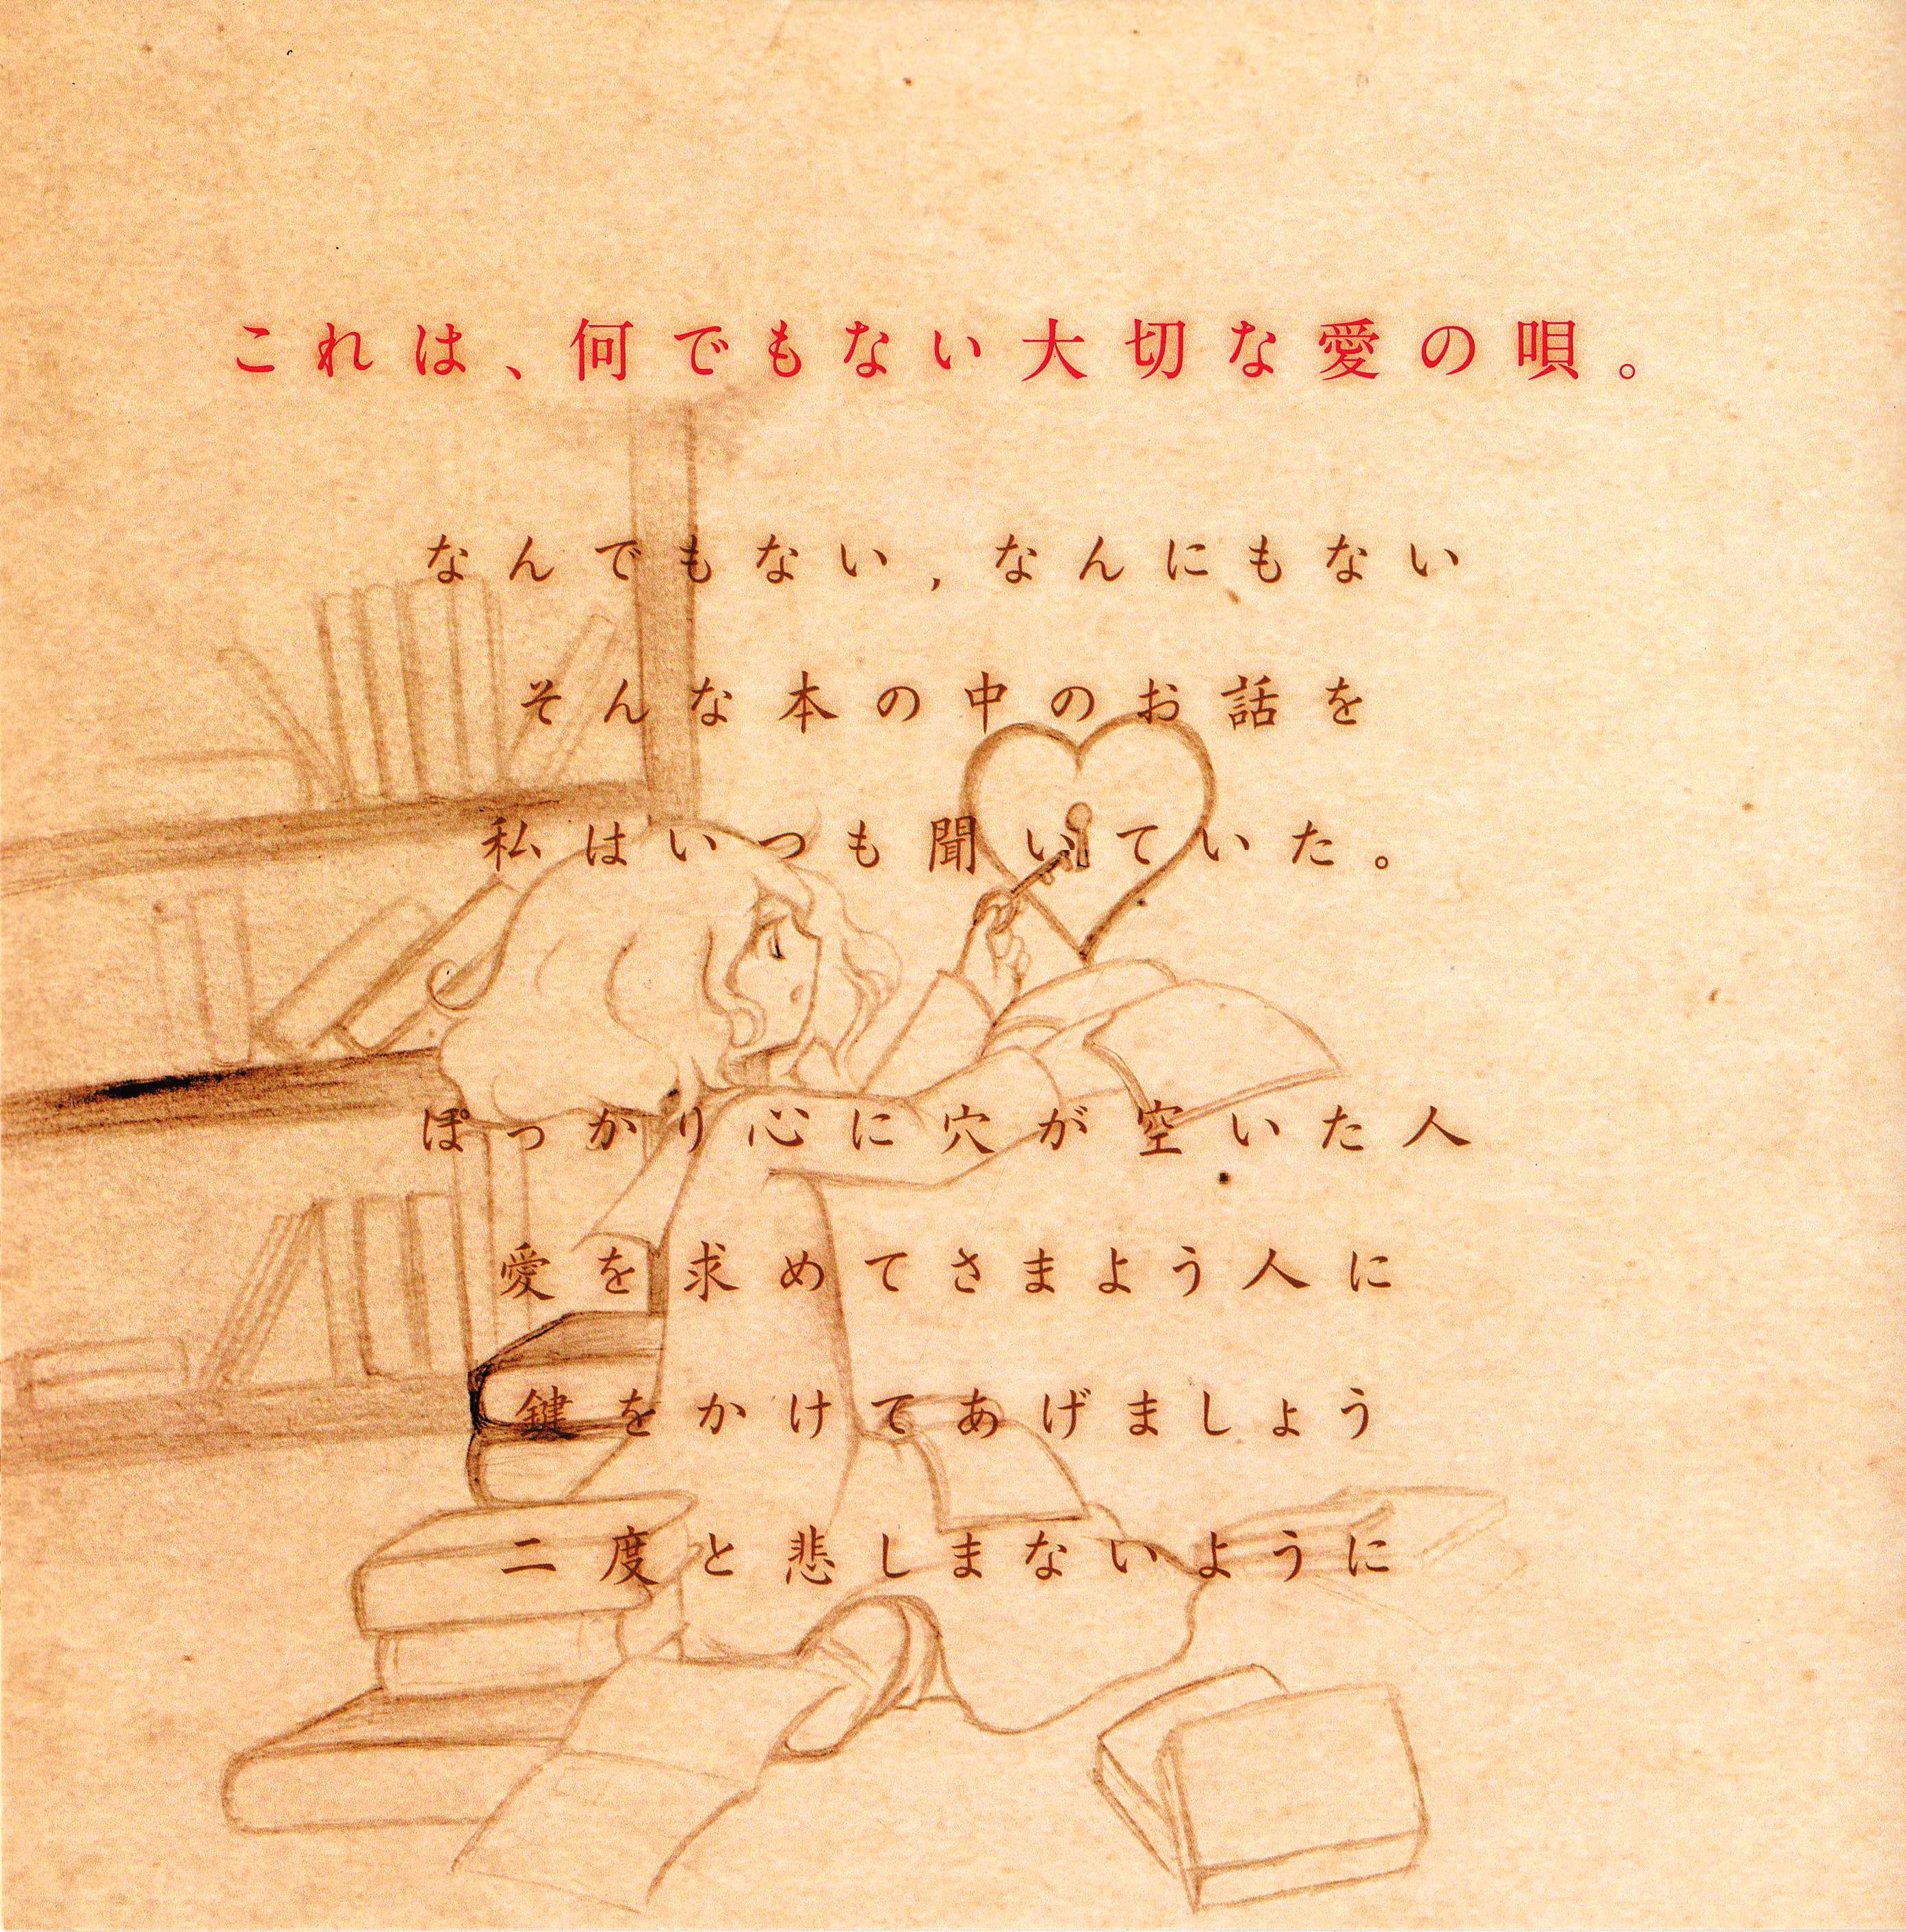 これは、何でもない大切な愛の唄。
なんでもない,なんにもない
そんな本の中のお話を
私はいつも聞いていた。
ぽっかり心に穴が空いた人
愛を求めてさまよう人に
鍵をかけてあげましょう
二度と悲しまないように